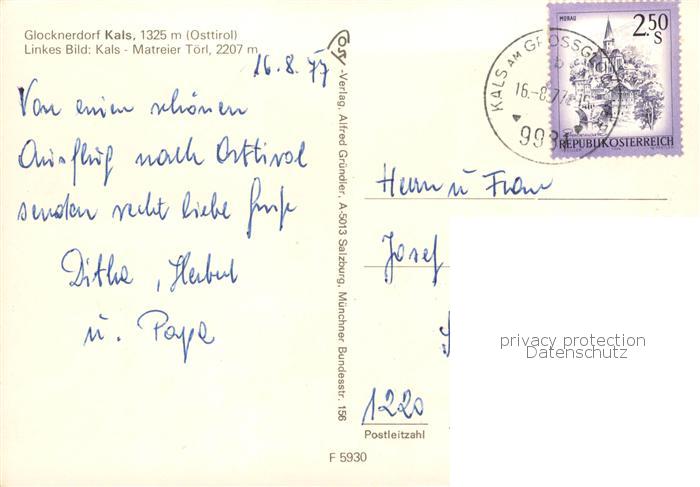 Glocknerdorf Kals, 1325 m (Osttirol)
Linkes Bild: Kals - Matreier Törl, 2207 m
16.8.77
Von einem schönen
Ausflug nach Osttirol
senden recht liebe Grüße
Ditha, Herbert
u. Papa
ÖSV -Verlag, Alfred Gründler, A-5013 Salzburg, Münchner Bundesstr. 156
KALS AM GROSSG
16.-8.77
9981
MURAU
2.50
S
REPUBLIK ÖSTERREICH
Herrn u Frau
Josef
privacy protection
Datenschutz
1220
Postleitzahl
F 5930